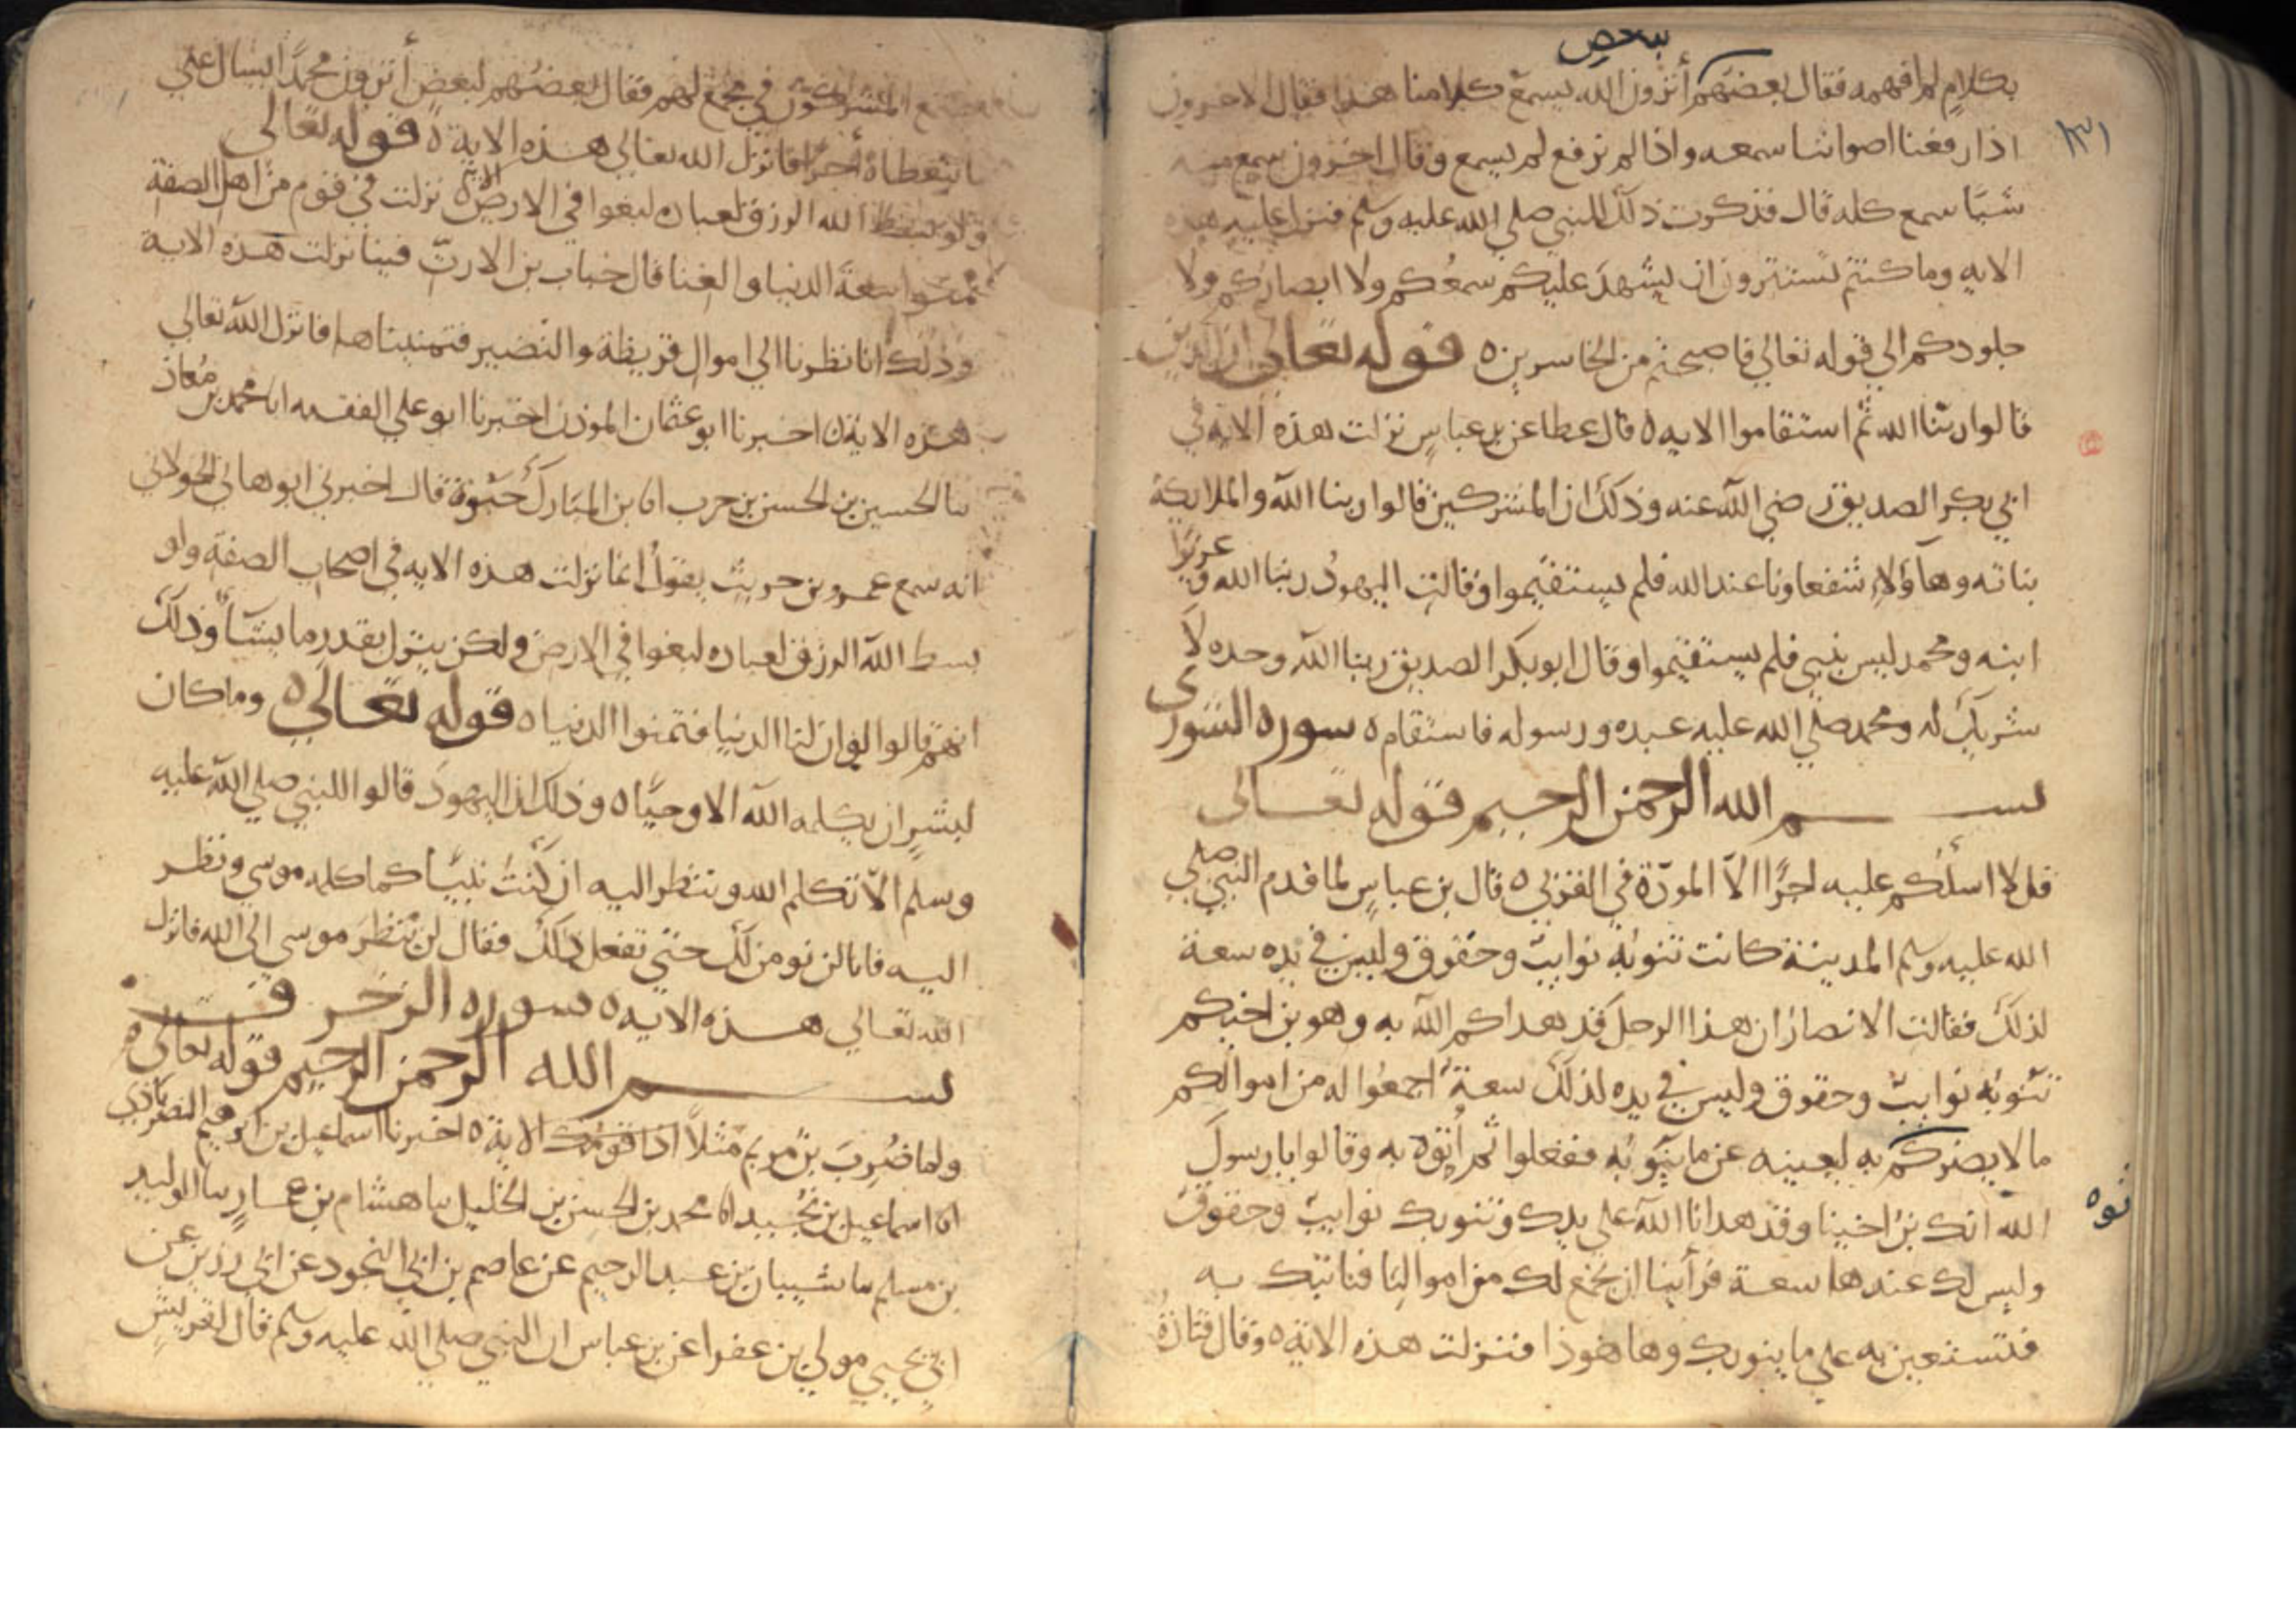 بعض
بكلامٍ لم افهمه فقال بعضهم أترون الله يسمع كلامنا هذا فقال الاخرون
١٣١
اذا رفعنا اصواتنا سمعه واذا لم نرفع لم يسمع وقال اخرون سمع منه
شيًا سمع كله قال فذكرت ذلك للنبي صلى الله عليه وسلم فنزل عليه هذه
الايه وما كنتم تستترون ان يشهدَ عليكم سمعُكم ولا ابصاركم ولا
جلودكم الى قوله تعالي فاصبحتم من الخاسرين ٥ قوله تعالى ان الذين
قالوا ربنا الله ثم استقاموا الايه ٥ قال عطا عن بن عباسٍ نزلت هذه الايه في
ابي بكر الصديق رضي الله عنه وذلك ان المشركين قالوا ربنا الله والملايكة
بناته وهآؤلاء شفعاونا عند الله فلم يستقيموا وقالت اليهودُ ربنا الله وعزيرًا
ابنه ومحمد ليس بنبي فلم يستقيموا وقال ابو بكر الصديق ربنا الله وحده لا
شريك له ومحمد صلي الله عليه عبده ورسوله فاستقام ٥ سوره الشورى
بسم الله الرحمن الرحيم قوله تعالى
قل لا اسلكم عليه اجرًا الاّ المودّة في القربي ٥ قال بن عباسٍ لما قدم النبي صلي
الله عليه وسلم المدينة كانت تنوبُه نوايبُ وحقوق وليس في يده سعة
لذلك فقالت الانصار ان هذا الرجل قد هداكم الله به وهو بن اختكم
تنوبُه نوايبُ وحقوق وليس في يده لذلك سعة اجمعُوا له من اموالكم
ما لا يضركم به ليعينه عن ما ينوبُه ففعلوا ثم أتوه به وقالوا يا رسولَ
توه
الله انك بن اختنا وقد هدانا الله على يدك وتنوبك نوايبُ وحقوق
وليس لك عندها سعة فرأينا ان نجمع لك من اموالنا فناتيك به
فتستعين به على ما ينوبك وها هو ذا فنزلت هذه الاية ٥ وقال قتادة
المشركون في مجمع لهم فقال بعضُهم لبعضٍ أترون محمدًا يسال علي
ما يتعطاهُ أجرًا فانزل الله تعالى هذه الاية ٥ قوله تعالى
ولو بسط الله الرزق لعباده لبغوا في الارض الاية ٥ نزلت في قوم من اهل الصفة
تمنوا سعةَ الدنيا والغنا قال خباب بن الارتّ فينا نزلت هذه الاية
وذلك انا نظرنا الي اموال قريظة والنضير فتمنيناها فانزل الله تعالي
هذه الاية ٥ اخبرنا ابو عثمان الموذن اخبرنا ابو علي الفقيه انا محمد بن مُعاذ
سا الحسين بن الحسن بن حرب انا بن المبَارك حَيْوة قال اخبرني ابو هاني الخولاني
انه سمع عمرو بن حريث يقول انما نزلت هذه الايه في اصحاب الصفة ولو
بسط الله الرزق لعباده لبغوا في الارض ولكن ينزل بقدرٍ ما يشآ وذلك
انهم قالوا لو ان لنا الدنيا فتمنوا الدنيا ٥ قوله تعالى ٥ وما كان
لبشرٍ ان يكلمه الله الا وحيًا ٥ وذلك ان اليهودَ قالوا للنبي صلي الله عليه
وسلم الاّ تكلم الله وتنظر اليه ان كُنتَ نبيًا كما كلمه موسي ونظر
اليه فانا لن نومن لك حتى تفعل ذلك فقال لن ينظرَ موسي الى الله فانزل
الله تعالي هذه الايه ٥ سوره الزخرف
بسم الله الرحمن الرحيم قوله تعالى ٥
ولما ضُرِبَ بن مريم مثلاً اذا قومُك الاية ٥ اخبرنا اسماعيل بن ابرهيم النصراباذي
انا اسماعيل بن نجُيد انا محمد بن الحسن بن الخليل سا هشام بن عمار سا الوليد
بن مسلم سا شيبان بن عبد الرحيم عن عاصم بن ابي النجود عن ابي رزين عن
ابي يحيي مولي بن عفرا عن بن عباس ان النبي صلي الله عليه وسلم قال لقريش